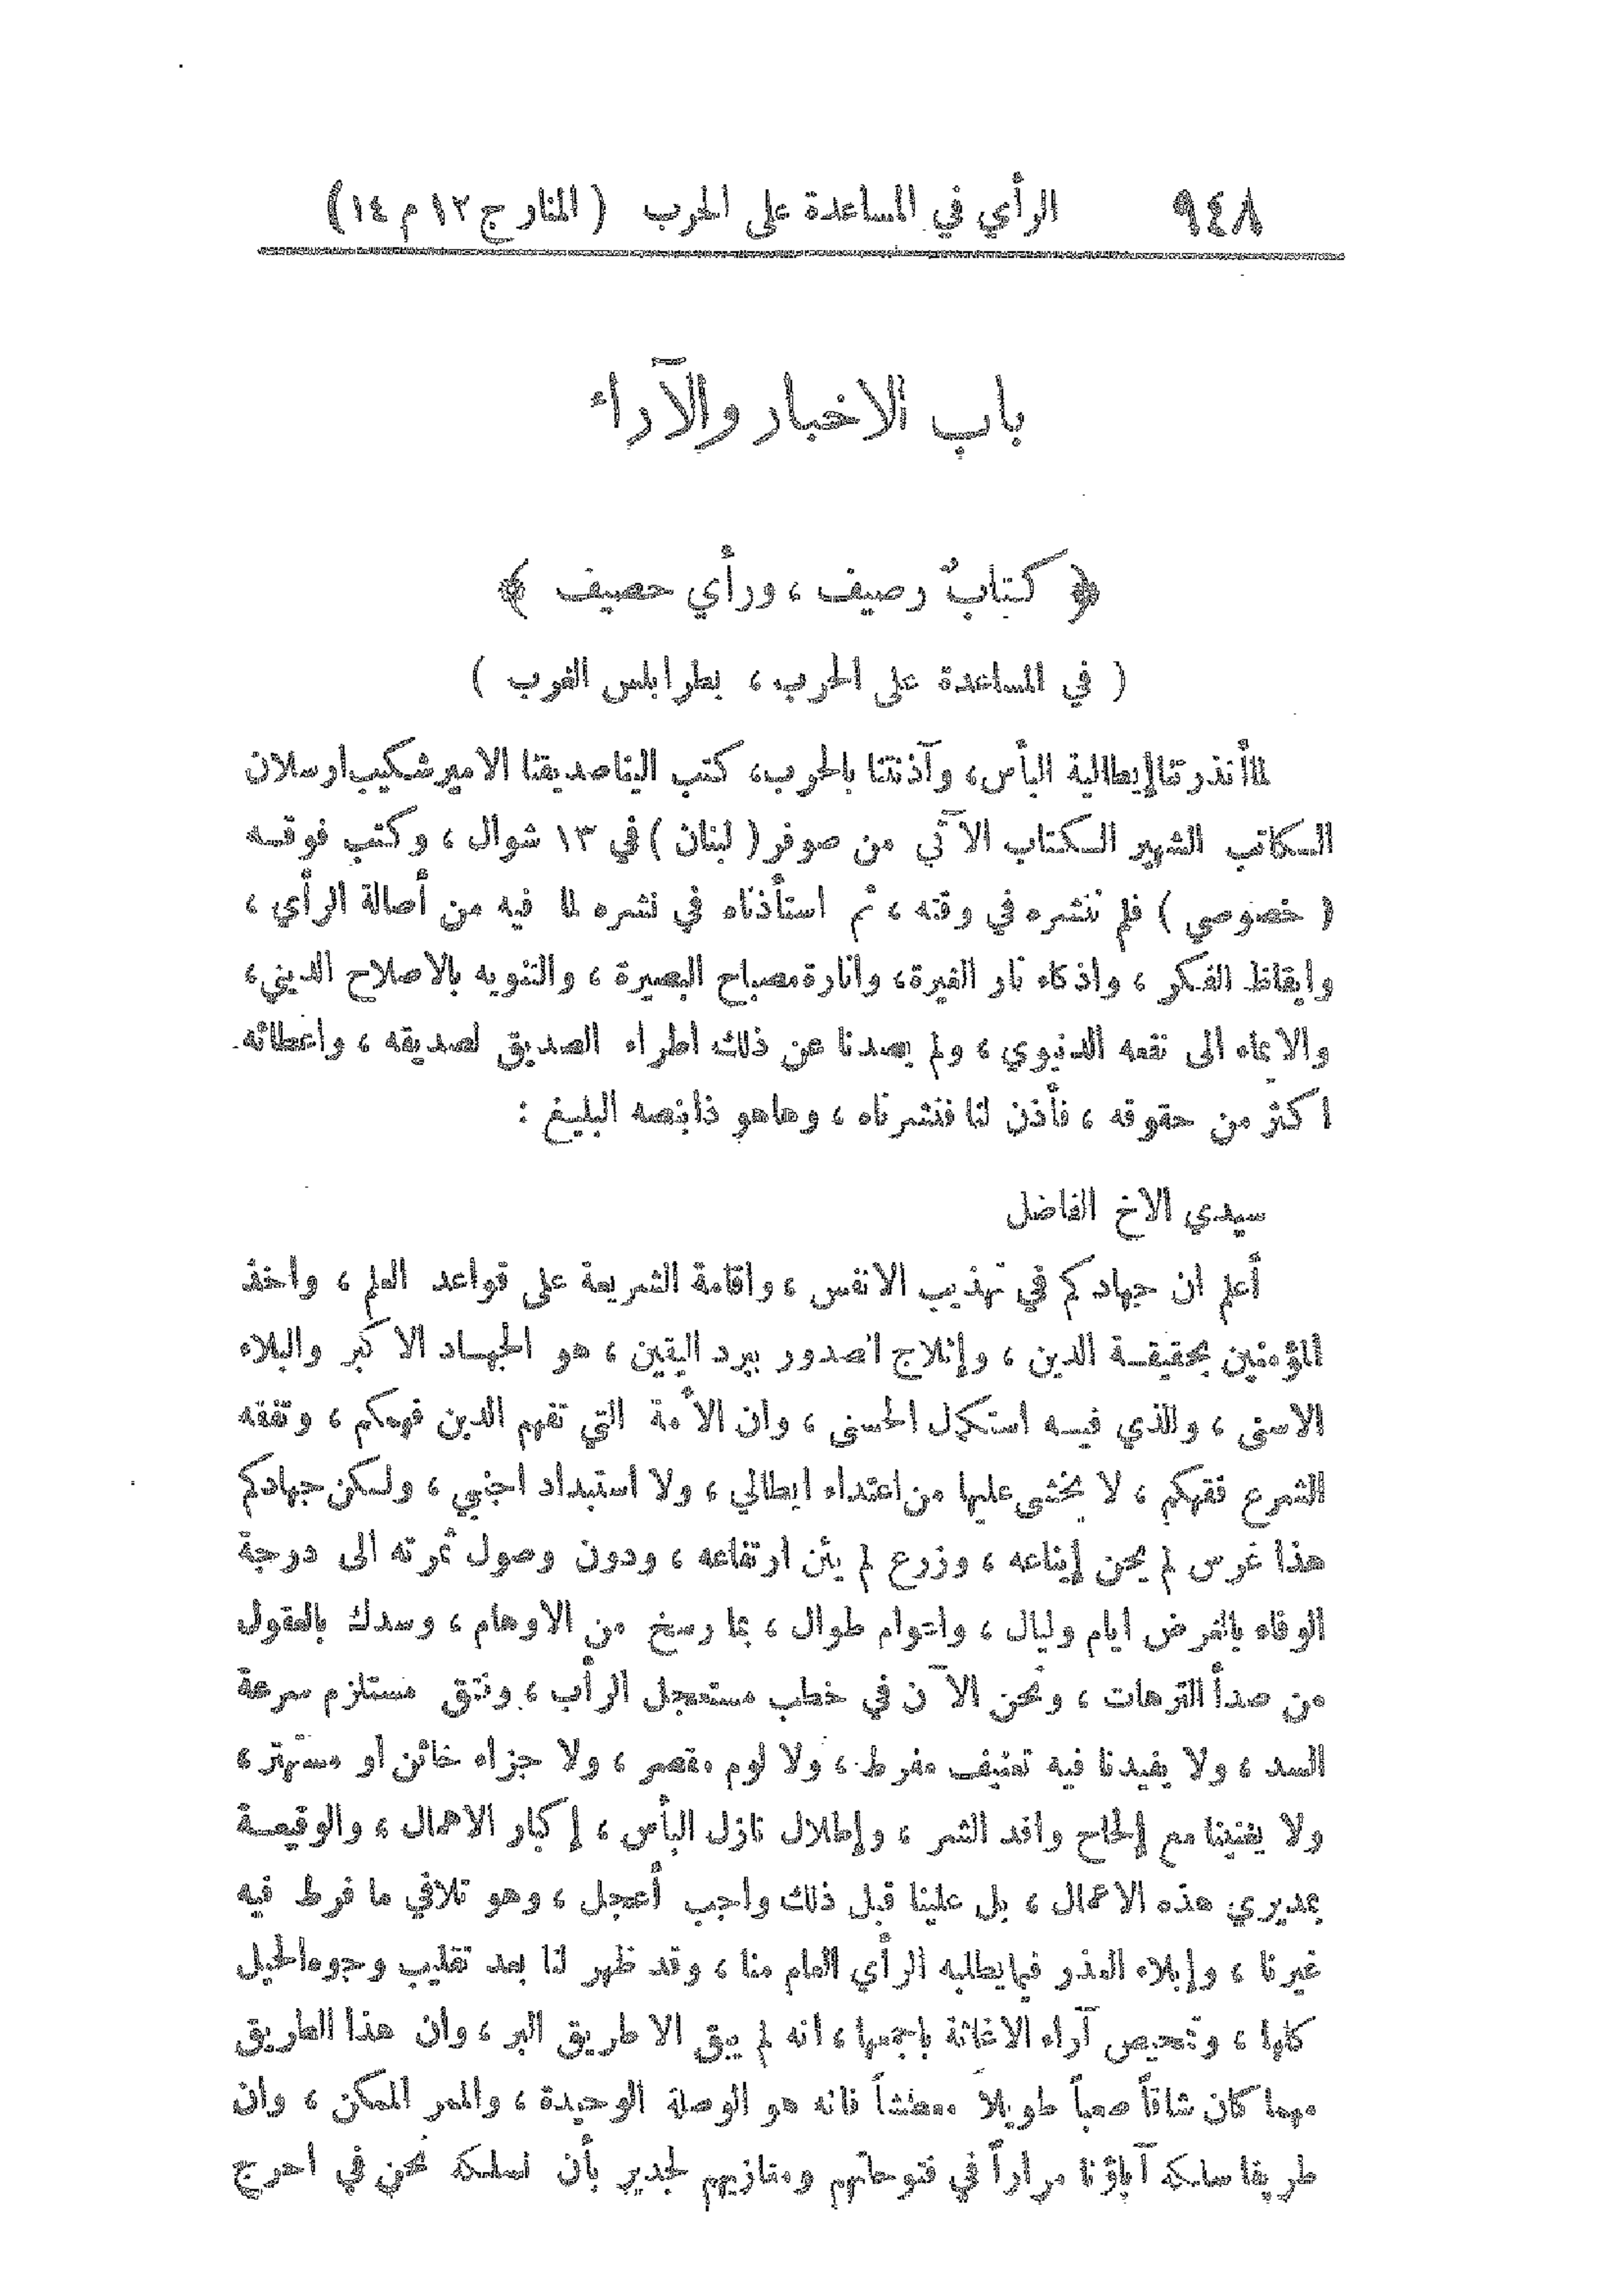 ٩٤٨ الرأي في المساعدة على الحرب ( المنار ج ١٢ م ١٤ )
باب الاخبار والآراء
﴿ كتابٌ رصيف ، ورأي حصيف ﴾
( في المساعدة على الحرب ، بطرابلس الغرب )
لما أنذرتنا إيطالية البأس ، وآذنتنا بالحرب ، كتب الينا صديقنا الامير شكيب ارسلان
الكاتب الشهير الكتاب الآتي من صوفر ( لبنان ) في ١٣ شوال ، وكتب فوقه
( خصوصي ) فلم ننشره في وقته ، ثم استأذناه في نشره لما فيه من أصالة الرأي ،
وايقاظ الفكر ، واذكاء نار الغيرة ، وانارة مصباح البصيرة ، والتنويه بالاصلاح الديني ،
والايماء الى نفعه الدنيوي ، ولم يصدنا عن ذلك اطراء الصديق لصديقه ، واعطائه
اكثر من حقوقه ، فأذن لنا فنشرناه ، وهاهو ذا بنصه البليغ :
سيدي الاخ الفاضل
أعلم ان جهادكم في تهذيب الانفس ، واقامة الشريعة على قواعد العلم ، واخذ
المؤمنين بحقيقة الدين ، وإثلاج الصدور ببرد اليقين ، هو الجهاد الاكبر والبلاء
الاسنى ، والذي فيه استكمل الحسنى ، وان الأمة التي تفهم الدين فهمكم ، وتفقه
الشرع فقهكم ، لا يخشى عليها من اعتداء ايطالي ، ولا استبداد اجنبي ، ولكن جهادكم
هذا غرس لم يحن إيناعه ، وزرع لم يئن ارتفاعه ، ودون وصول ثمرته الى درجة
الوفاء بالغرض ايام وليال ، واعوام طوال ، بما رسخ من الاوهام ، وسدك بالعقول
من صدأ الترهات ، ونحن الآن في خطب مستعجل الرأب ، وفتق مستلزم سرعة
السد ، ولا يفيدنا فيه تعنيف مفرط ، ولا لوم مقصر ، ولا جزاء خائن او مستهتر ،
ولا يغنينا مع إلحاح وافد الشر ، وإطلال نازل البأس ، إكبار الاهمال ، والوقيعة
بمديري هذه الاعمال ، بل علينا قبل ذلك واجب أعجل ، وهو تلافي ما فرط فيه
غيرنا ، وإبلاء العذر فيما يطلبه الرأي العام منا ، وقد ظهر لنا بعد تقليب وجوه الحيل
كلها ، وتمحيص آراء الاغاثة باجمعها ، انه لم يبق الا طريق البر ، وان هذا الطريق
مهما كان شاقاً صعباً طويلاً معطشاً فانه هو الوصلة الوحيدة ، والممر الممكن ، وان
طريقا سلكه آباؤنا مراراً في فتوحاتهم ومغازيهم لجدير بأن نسلكه نحن في احرج